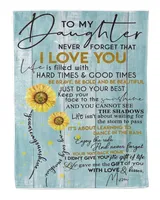 TO MY
Daughter
NEVER FORGET THAT
I LOVE YOU
Life is filled with
HARD TIMES & GOOD TIMES
BE BRAVE, BE BOLD AND BE BEAUTIFUL
JUST DO YOUR BEST
Keep your
face to the sunshine
AND YOU CANNOT SEE
THE SHADOWS
Life isn't about waiting
for the storm to pass
IT'S ABOUT LEARNING TO
DANCE IN THE RAIN
Enjoy the ride
AND NEVER FORGET
YOUR WAY BACK HOME
I DIDN'T GIVE YOU the gift of life
Life gave me the GIFT OF YOU
WITH LOVE &
Mom